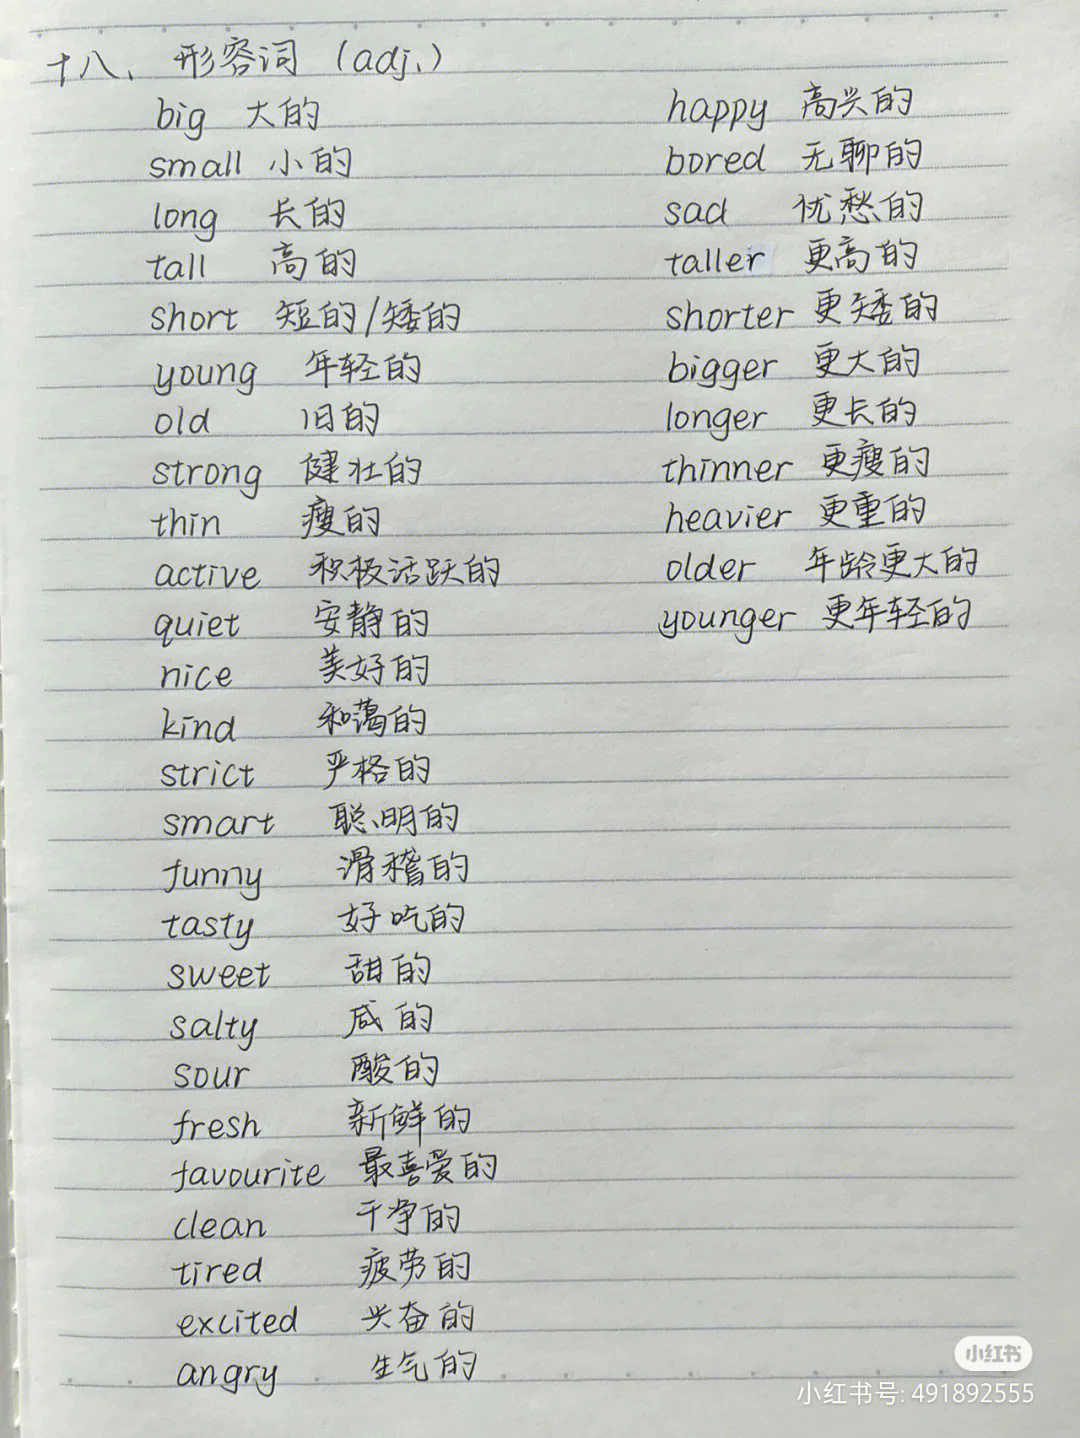 十八、形容词 (adj.)
big 大的
small 小的
long 长的
tall 高的
short 短的/矮的
young 年轻的
old 旧的
strong 健壮的
thin 瘦的
active 积极活跃的
quiet 安静的
nice 美好的
kind 和蔼的
strict 严格的
smart 聪明的
funny 滑稽的
tasty 好吃的
sweet 甜的
salty 咸的
sour 酸的
fresh 新鲜的
favourite 最喜爱的
clean 干净的
tired 疲劳的
excited 兴奋的
angry 生气的
happy 高兴的
bored 无聊的
sad 忧愁的
taller 更高的
shorter 更矮的
bigger 更大的
longer 更长的
thinner 更瘦的
heavier 更重的
older 年龄更大的
younger 更年轻的
小红书
小红书号: 491892555